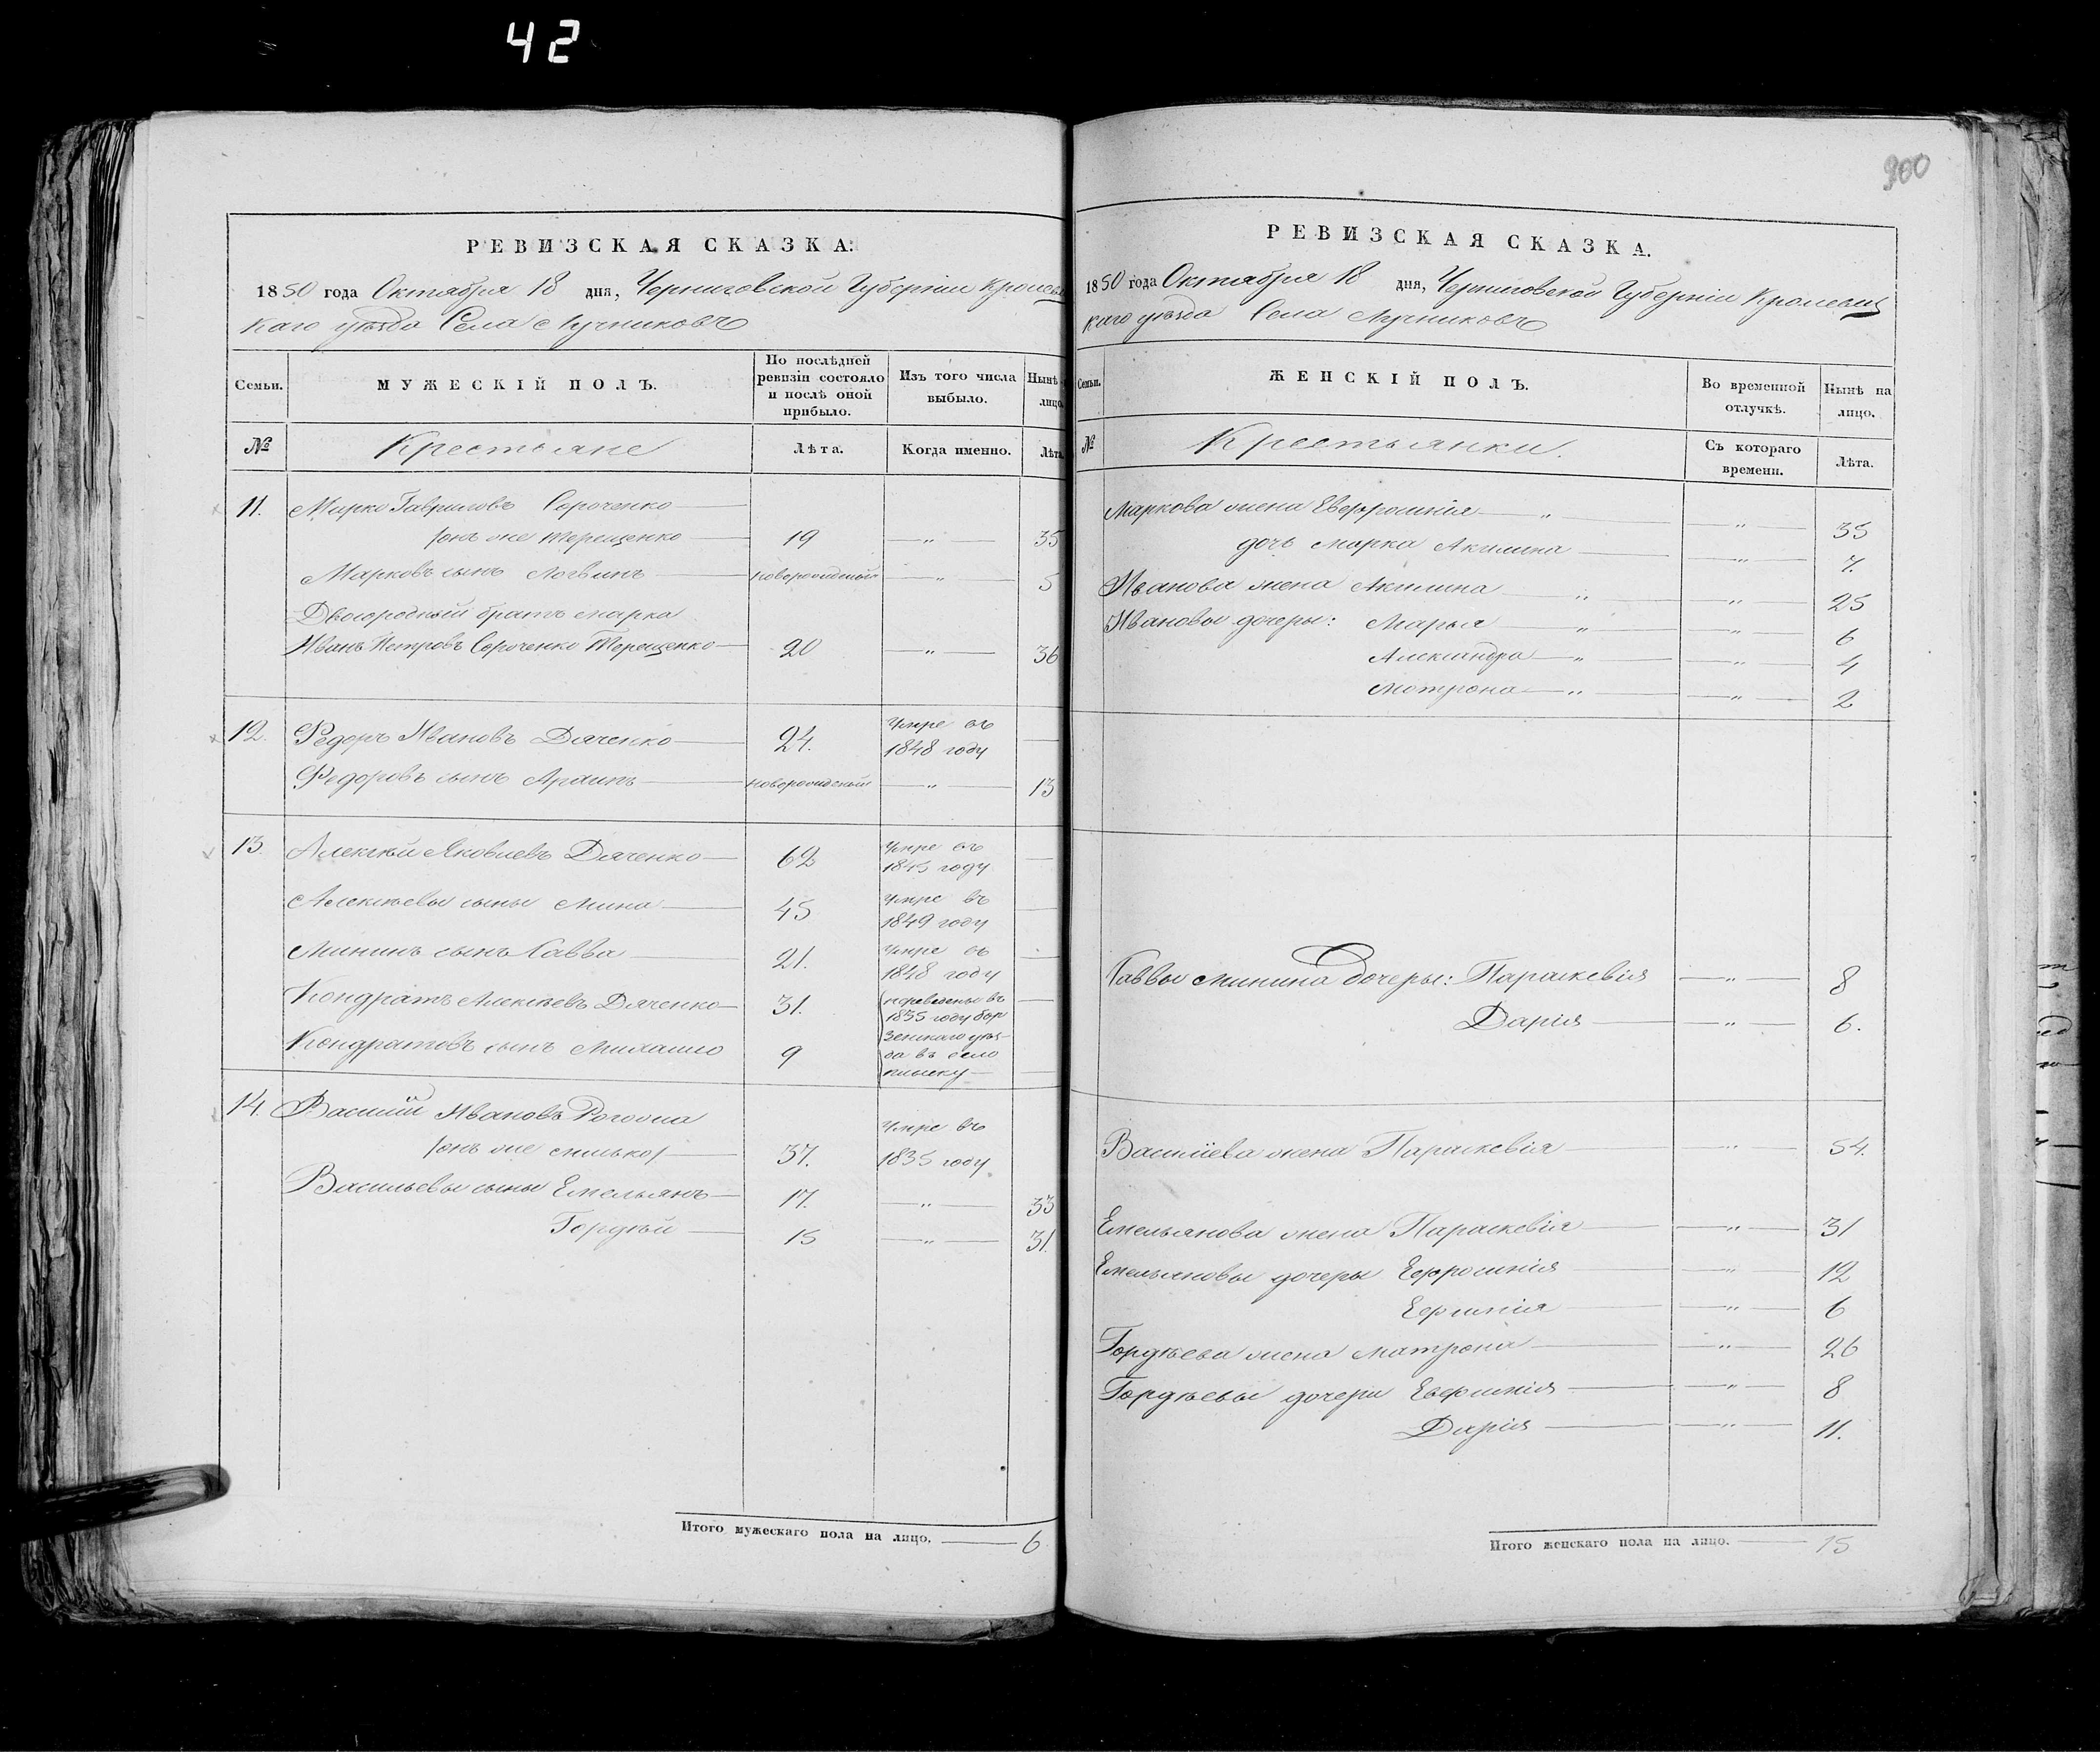 42
РЕВИЗСКАЯ СКАЗКА.
1850 года Октября 18 дня, Черниговской Губерніи Кролевец
каго уѣзда Села Лучниковъ
Семьи.
МУЖЕСКІЙ ПОЛЪ.
По послѣдней
ревизіи состояло
и послѣ оной
прибыло.
Изъ того числа
выбыло.
Нынѣ
лицо.
№
Крестьяне
Лѣта.
Когда именно.
Лѣта
11. Марко Гавриловъ Сороченко
онъ же Терещенко 19 " 35
Марковъ сынъ Логвинъ новорожденный " 5
Двоюродный братъ Марка
Иванъ Петровъ Сороченко Терещенко 20 " 36
12. Федоръ Ивановъ Дяченко 24. Умре въ
1848 году
Федоровъ сынъ новорожденный " 13
13. Алексѣй Яковлевъ Дяченко 62 Умре въ
1845 году
Алексѣевы сыны Мина 45 Умре въ
1849 году
Мининъ сынъ Савва 21. Умре въ
1848 году
Кондратъ Алексѣевъ Дяченко 31. переведены въ
1835 году Бор
Кондратовъ сынъ Михайло 9 зенскаго уѣз
да въ село
Плиску
14. Василій Ивановъ Рогожа Умре въ
/онъ же 37. 1835 году
Васильевы сыны Емельянъ 17. " 33
Гордѣй 15 " 31.
Итого мужескаго пола на лицо. 6
300
РЕВИЗСКАЯ СКАЗКА.
1850 года Октября 18 дня, Черниговской Губерніи Кролевец
каго уѣзда Села Лучниковъ
Семьи.
ЖЕНСКІЙ ПОЛЪ.
Во временной
отлучкѣ.
Нынѣ на
лицо.
№
Крестьянки.
Съ котораго
времени.
Лѣта.
Маркова жена Евфросинія " " 35
дочь Марка Акилина " 7.
Иванова жена Акилина " " 25
Ивановы дочеры: Марья " " 6
Александра " " 4
Мотрона " " 2
Саввы Минина дочеры: Параскевія " 8
Дарія " 6.
Василіева жена Параскевія " 54.
Емельянова жена Параскевія " 31
Емельяновы дочеры Ефросинія " 12
Ефимія " 6
Гордѣева жена Матрона " 26
Гордѣевы дочери " 8
Дарія " 11.
Итого женскаго пола на лицо. 15